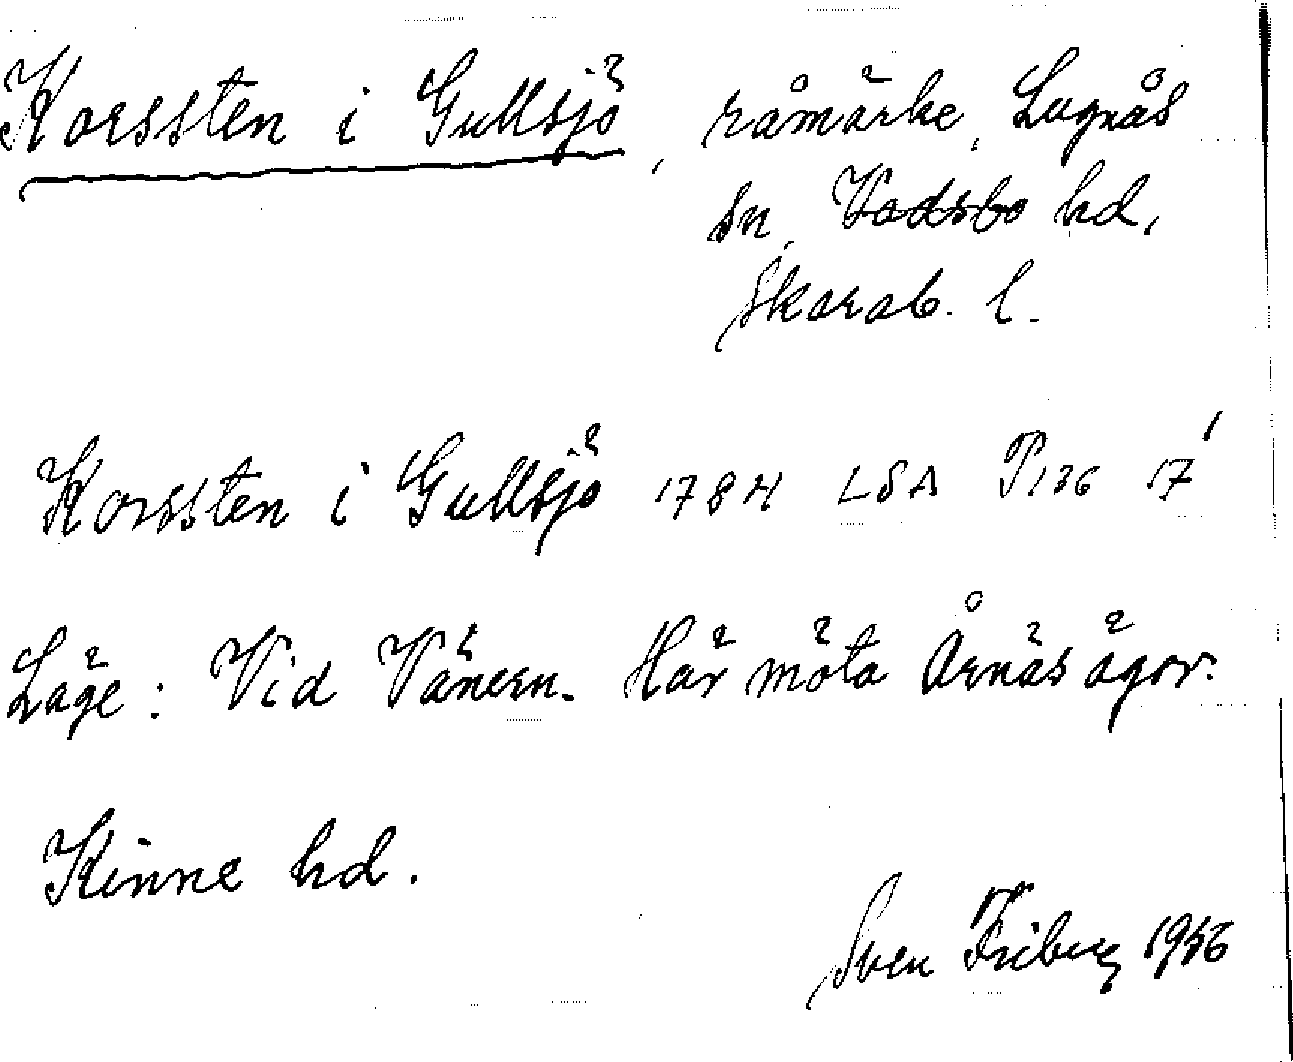 Korssten i Gullsjö, råmärke, Lugnås
sn, Vadsbo hd,
Skarab. l.
Korssten i Gullsjö 1784 LSA P136 17¹
Läge: Vid Vänern. Här möta Årnäs ägor.
Kinne hd.
Sven Friberg